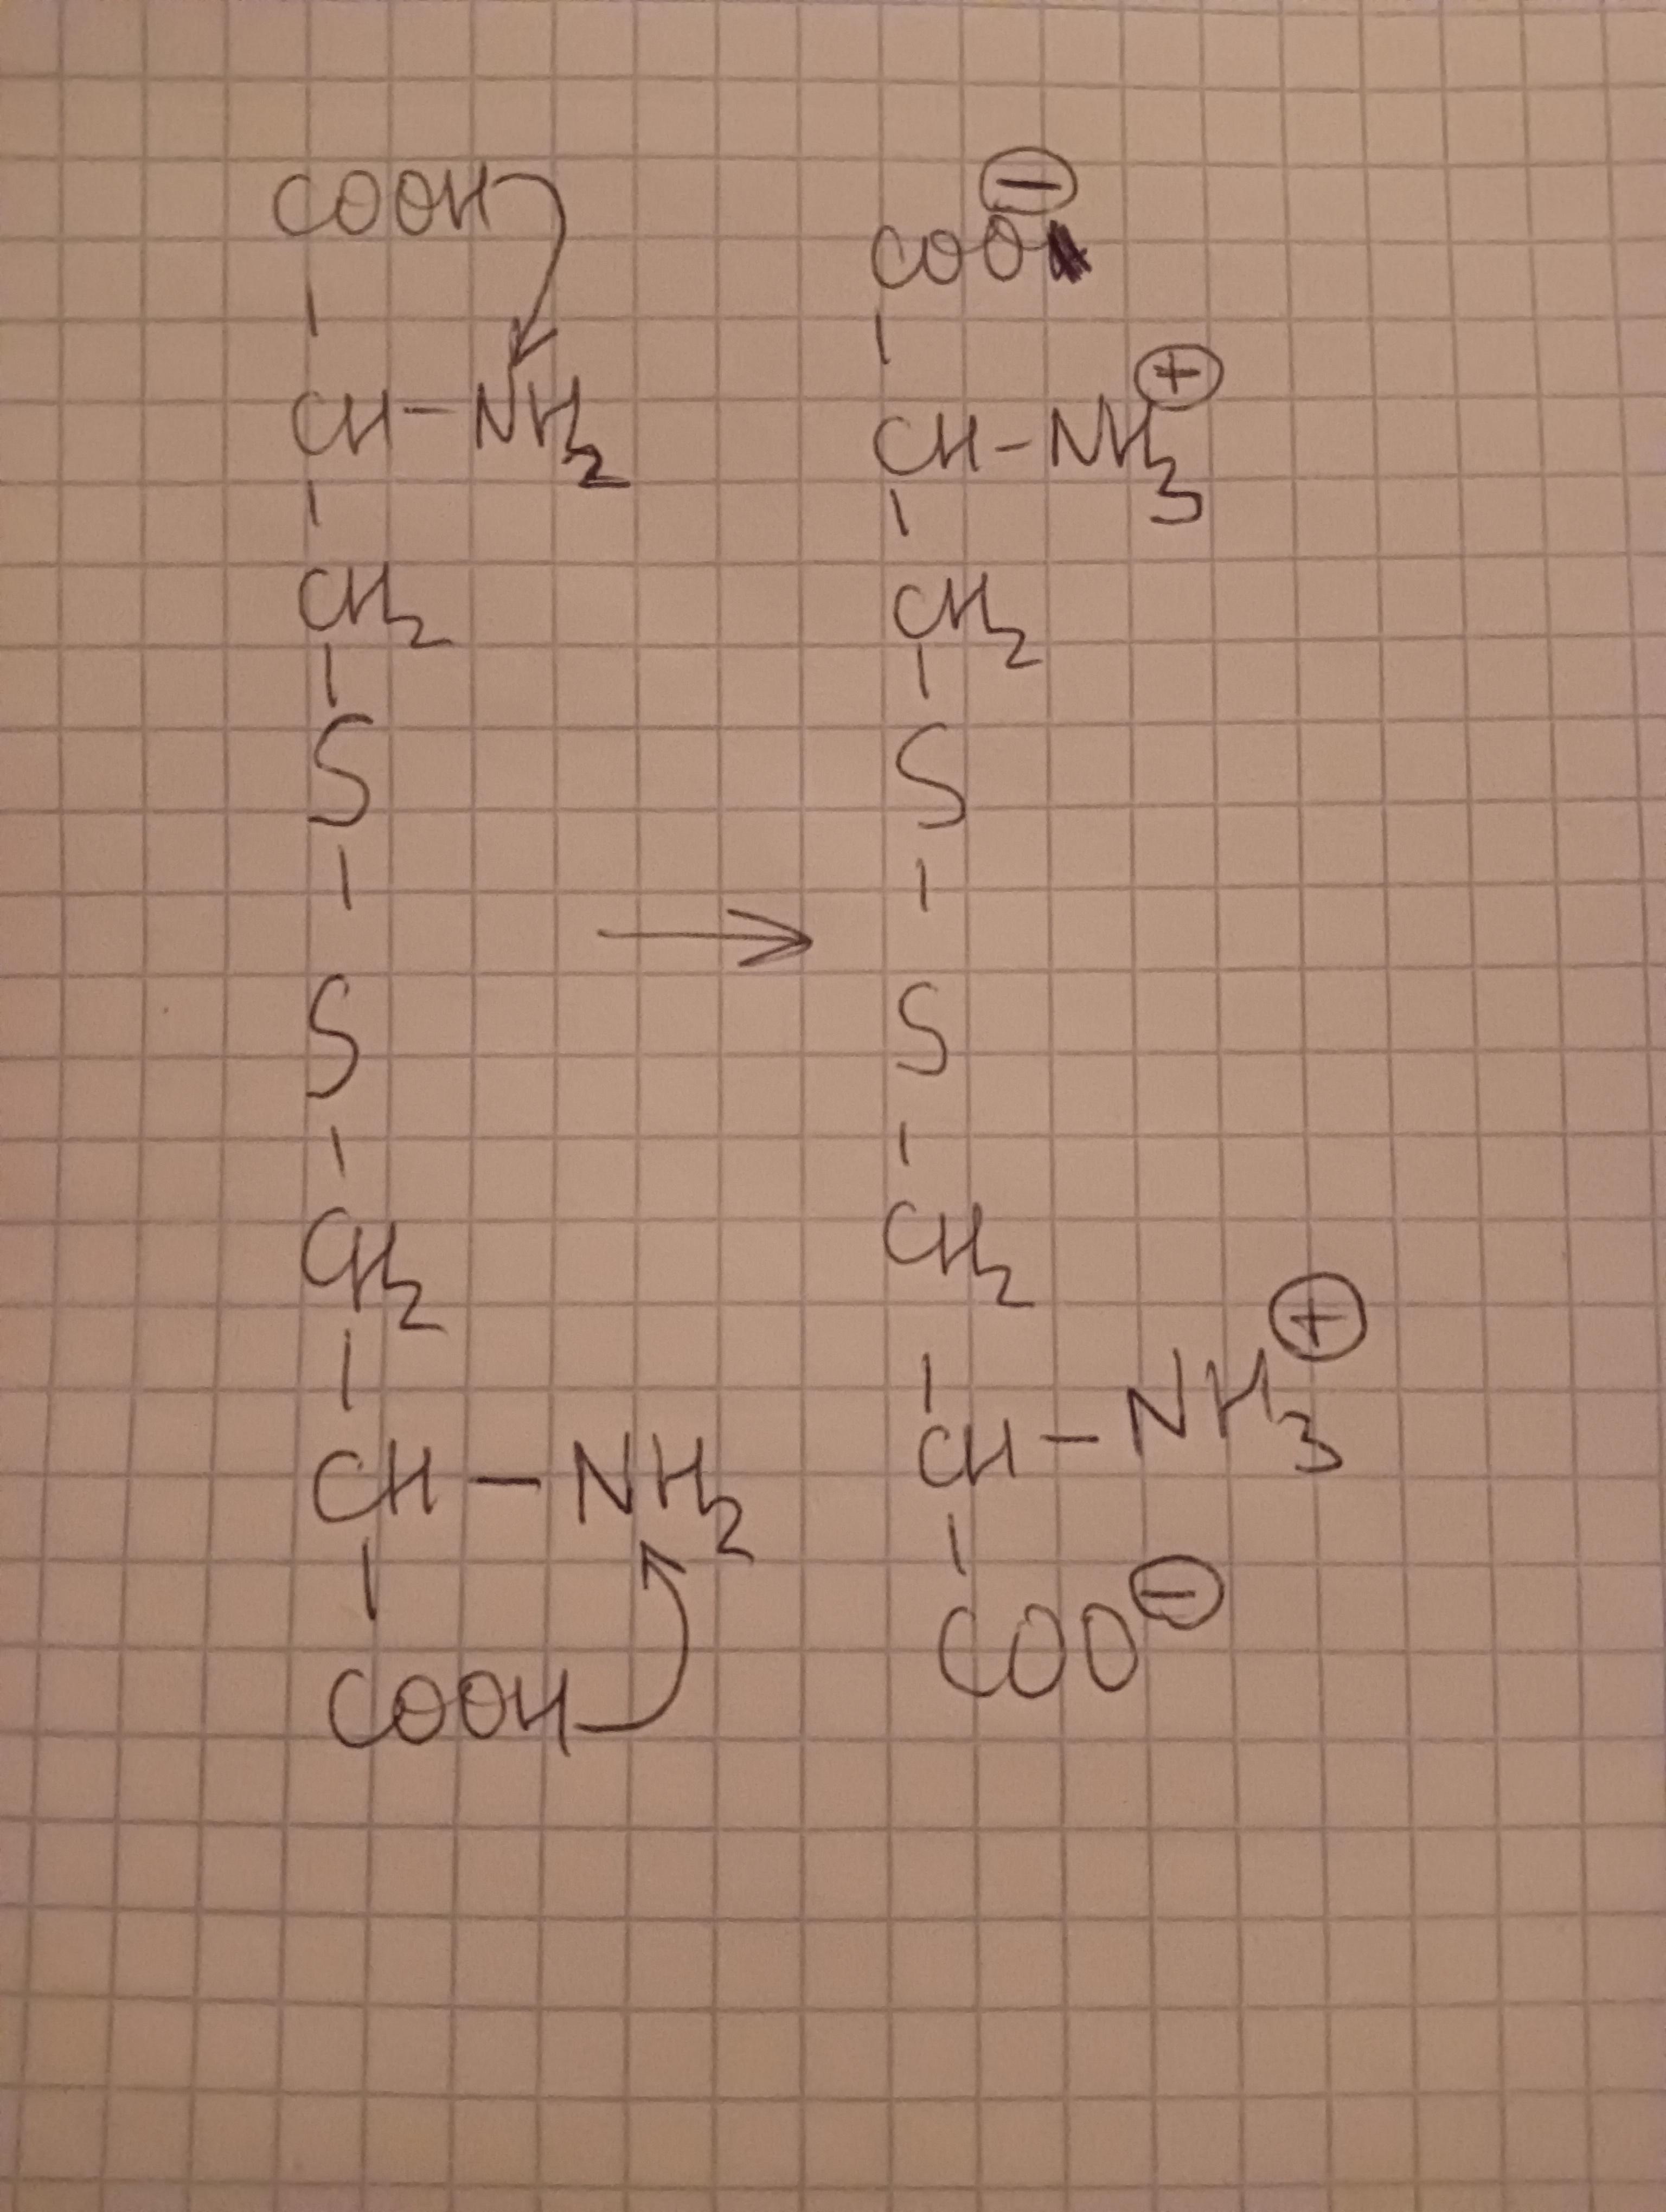 COOH
|
CH-NH₂
|
CH₂
|
S
|
S
|
CH₂
|
CH-NH₂
|
COOH
→
COO⊖
|
CH-NH₃⊕
|
CH₂
|
S
|
S
|
CH₂
|
CH-NH₃⊕
|
COO⊖